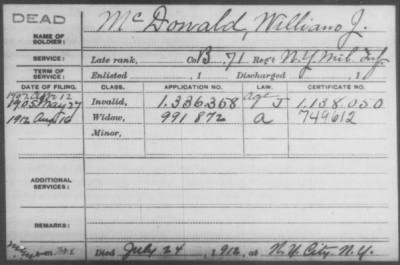 DEAD
NAME OF SOLDIER: McDonald, William J.
SERVICE: Late rank, Co. B. 71 Reg't N.Y. Mil. Inf.
TERM OF SERVICE: Enlisted , 1 Discharged , 1
DATE OF FILING. CLASS. APPLICATION NO. LAW. CERTIFICATE NO.
12
1905 May 27 Invalid, 1.336.358 Age J 1.138.050
1912 Aug 16 Widow, 991 872 a 749612
Minor,
ADDITIONAL SERVICES:
REMARKS:
Died July 24 , 1912, at N.Y. City N.Y.